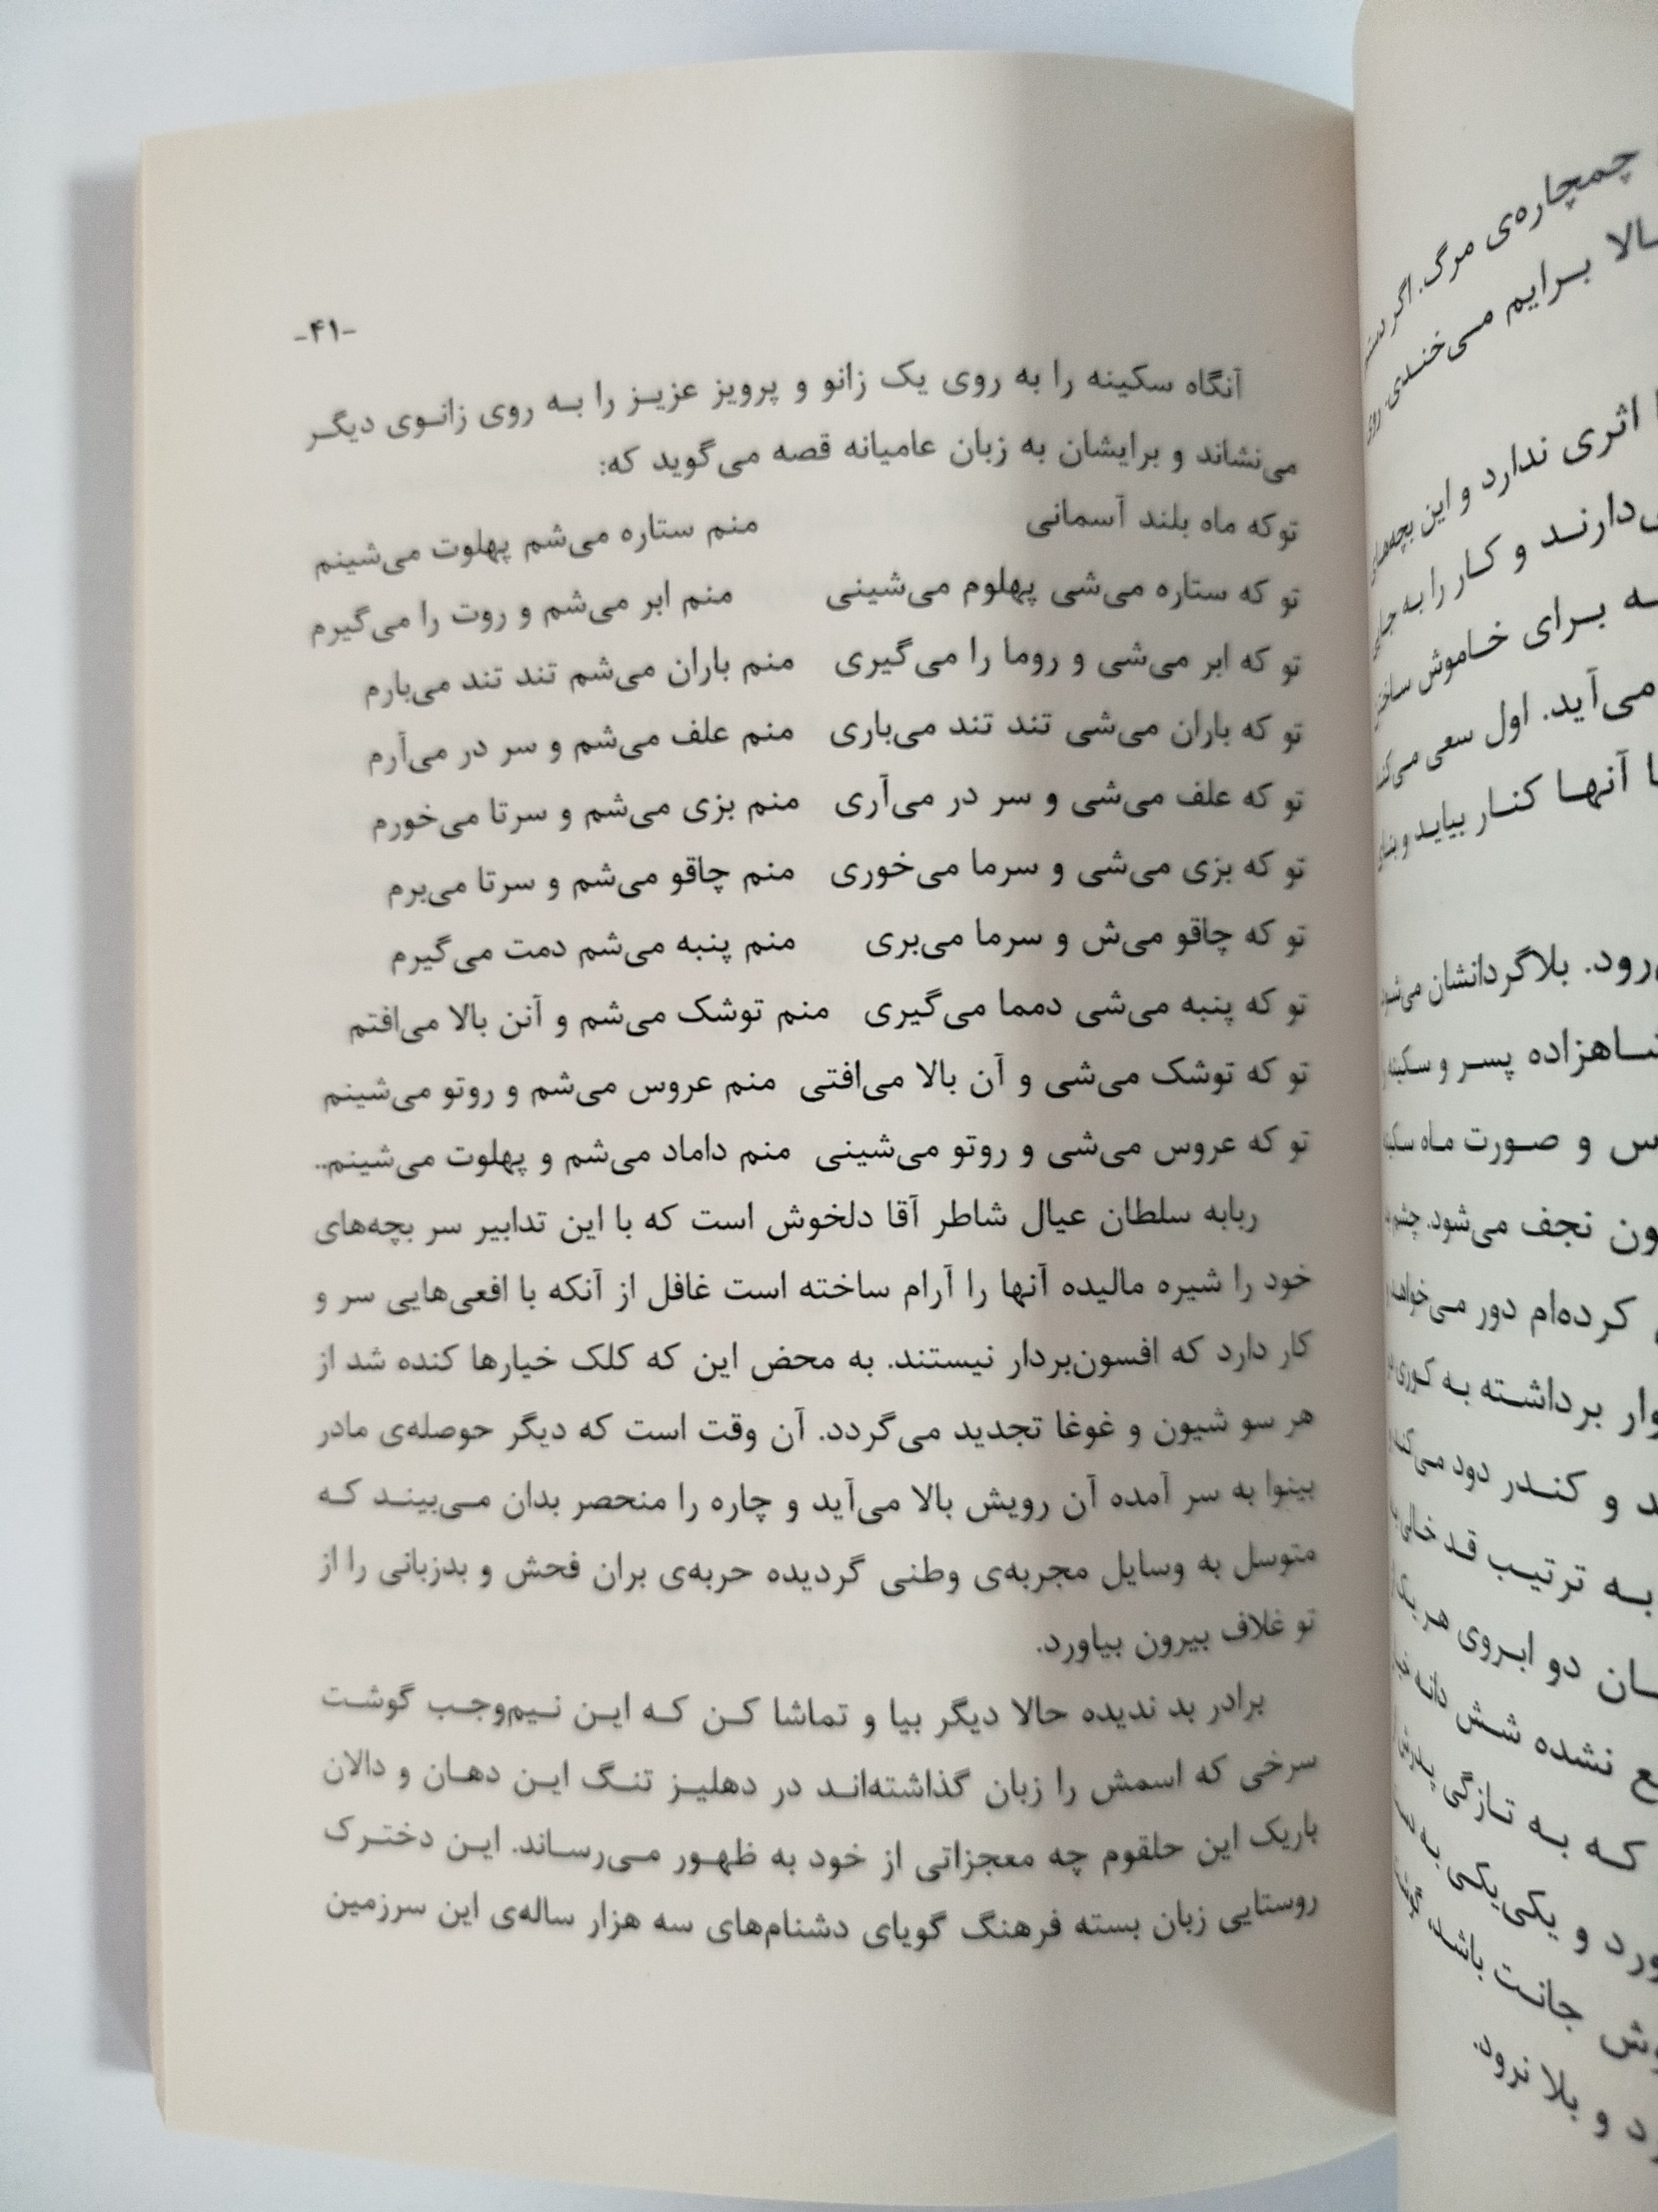 -۴۱-
آنگاه سکینه را به روی یک زانو و پرویز عزیز را به روی زانوی دیگر
می‌نشاند و برایشان به زبان عامیانه قصه می‌گوید که:
توکه ماه بلند آسمانی منم ستاره می‌شم پهلوت می‌شینم
تو که ستاره می‌شی پهلوم می‌شینی منم ابر می‌شم و روت را می‌گیرم
تو که ابر می‌شی و روما را می‌گیری منم باران می‌شم تند تند می‌بارم
تو که باران می‌شی تند تند می‌باری منم علف می‌شم و سر در می‌آرم
تو که علف می‌شی و سر در می‌آری منم بزی می‌شم و سرتا می‌خورم
تو که بزی می‌شی و سرما می‌خوری منم چاقو می‌شم و سرتا می‌برم
تو که چاقو می‌ش و سرما می‌بری منم پنبه می‌شم دمت می‌گیرم
تو که پنبه می‌شی دمما می‌گیری منم توشک می‌شم و آنن بالا می‌افتم
تو که توشک می‌شی و آن بالا می‌افتی منم عروس می‌شم و روتو می‌شینم
تو که عروس می‌شی و روتو می‌شینی منم داماد می‌شم و پهلوت می‌شینم..
ربابه سلطان عیال شاطر آقا دلخوش است که با این تدابیر سر بچه‌های
خود را شیره مالیده آنها را آرام ساخته است غافل از آنکه با افعی‌هایی سر و
کار دارد که افسون‌بردار نیستند. به محض این که کلک خیارها کنده شد از
هر سو شیون و غوغا تجدید می‌گردد. آن وقت است که دیگر حوصله‌ی مادر
بینوا به سر آمده آن رویش بالا می‌آید و چاره را منحصر بدان می‌بیند که
متوسل به وسایل مجربه‌ی وطنی گردیده حربه‌ی بران فحش و بدزبانی را از
تو غلاف بیرون بیاورد.
برادر بد ندیده حالا دیگر بیا و تماشا کن که این نیم‌وجب گوشت
سرخی که اسمش را زبان گذاشته‌اند در دهلیز تنگ این دهان و دالان
باریک این حلقوم چه معجزاتی از خود به ظهور می‌رساند. این دخترک
روستایی زبان بسته فرهنگ گویای دشنام‌های سه هزار ساله‌ی این سرزمین
چمچاره‌ی مرگ. اگر
برایم می‌خندی
اثری ندارد و این بچه‌های
دارند و کار را به
برای خاموش
می‌آید. اول سعی
آنها کنار بیاید
رود. بلاگردانشان می‌شود
پسر و سکینه
و صورت ماه
نجف می‌شود.
کرده‌ام دور می‌خواهد
برداشته به کوری
و کندر دود
به ترتیب قد
دو ابروی هر
نشده شش دانه
که به تازگی
و یکی‌یکی به
جانت باشد،
و بلا نرود.